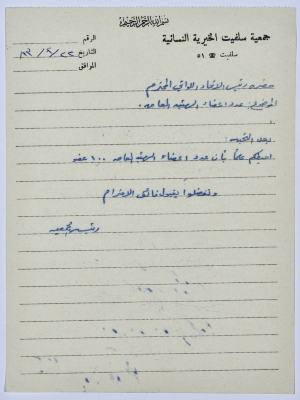 بسم الله الرحمن الرحيم
جمعية سلفيت الخيرية النسائية
سلفيت ☎ ٥١
الرقم
التاريخ ٢٢/٤/٨٣
الموافق
حضرة رئيس الاتحاد اللوائي المحترم
الموضوع: عدد اعضاء الهيئة العامة.
بعد التحية:
احيطكم علماً بأن عدد اعضاء الهيئة العامة ١٠٠ عضو
وتفضلوا بقبول فائق الاحترام
رئيسة الجمعية